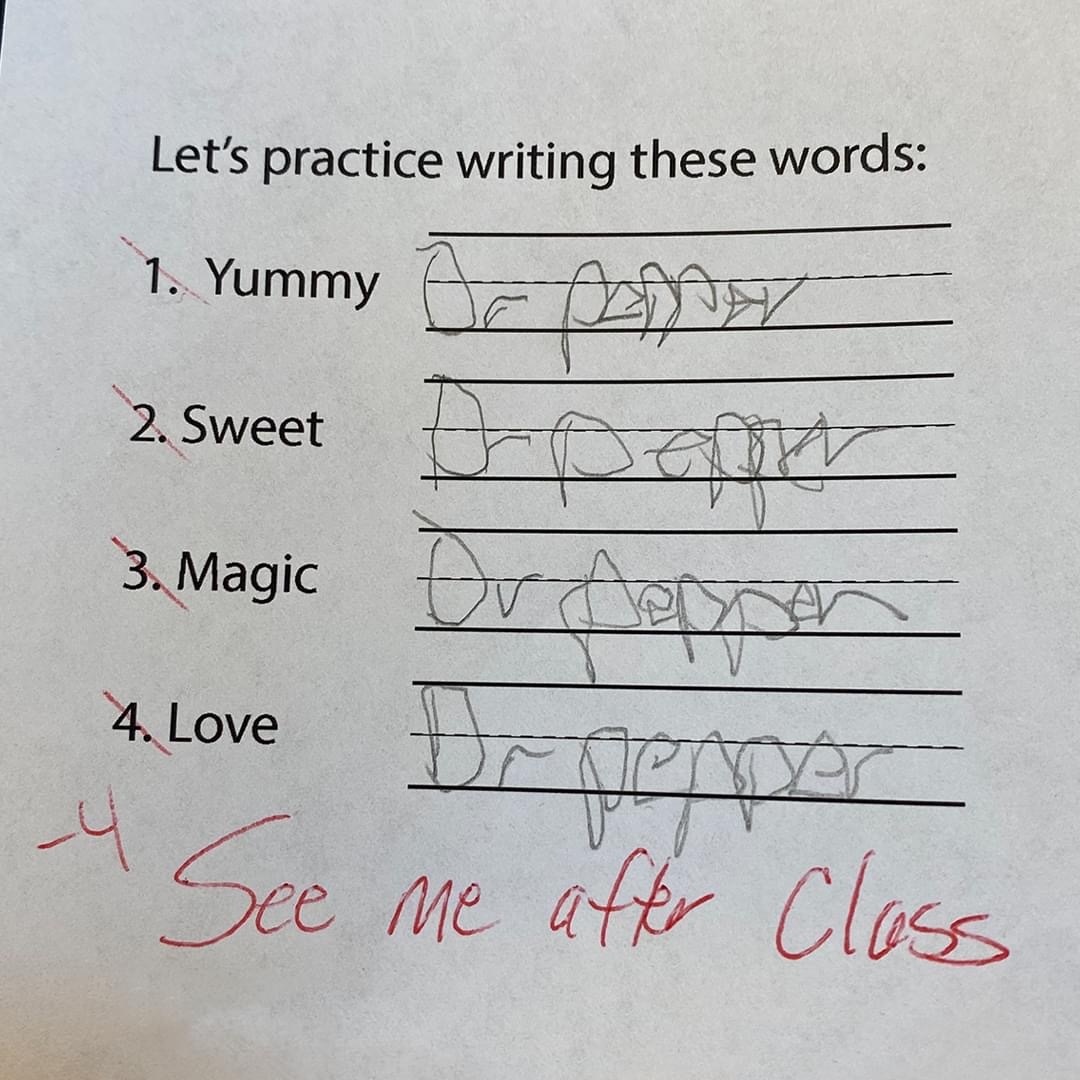 Let's practice writing these words:
1. Yummy Dr pepper
2. Sweet Dr pepper
3. Magic Dr pepper
4. Love Dr pepper
-4
See me after Class